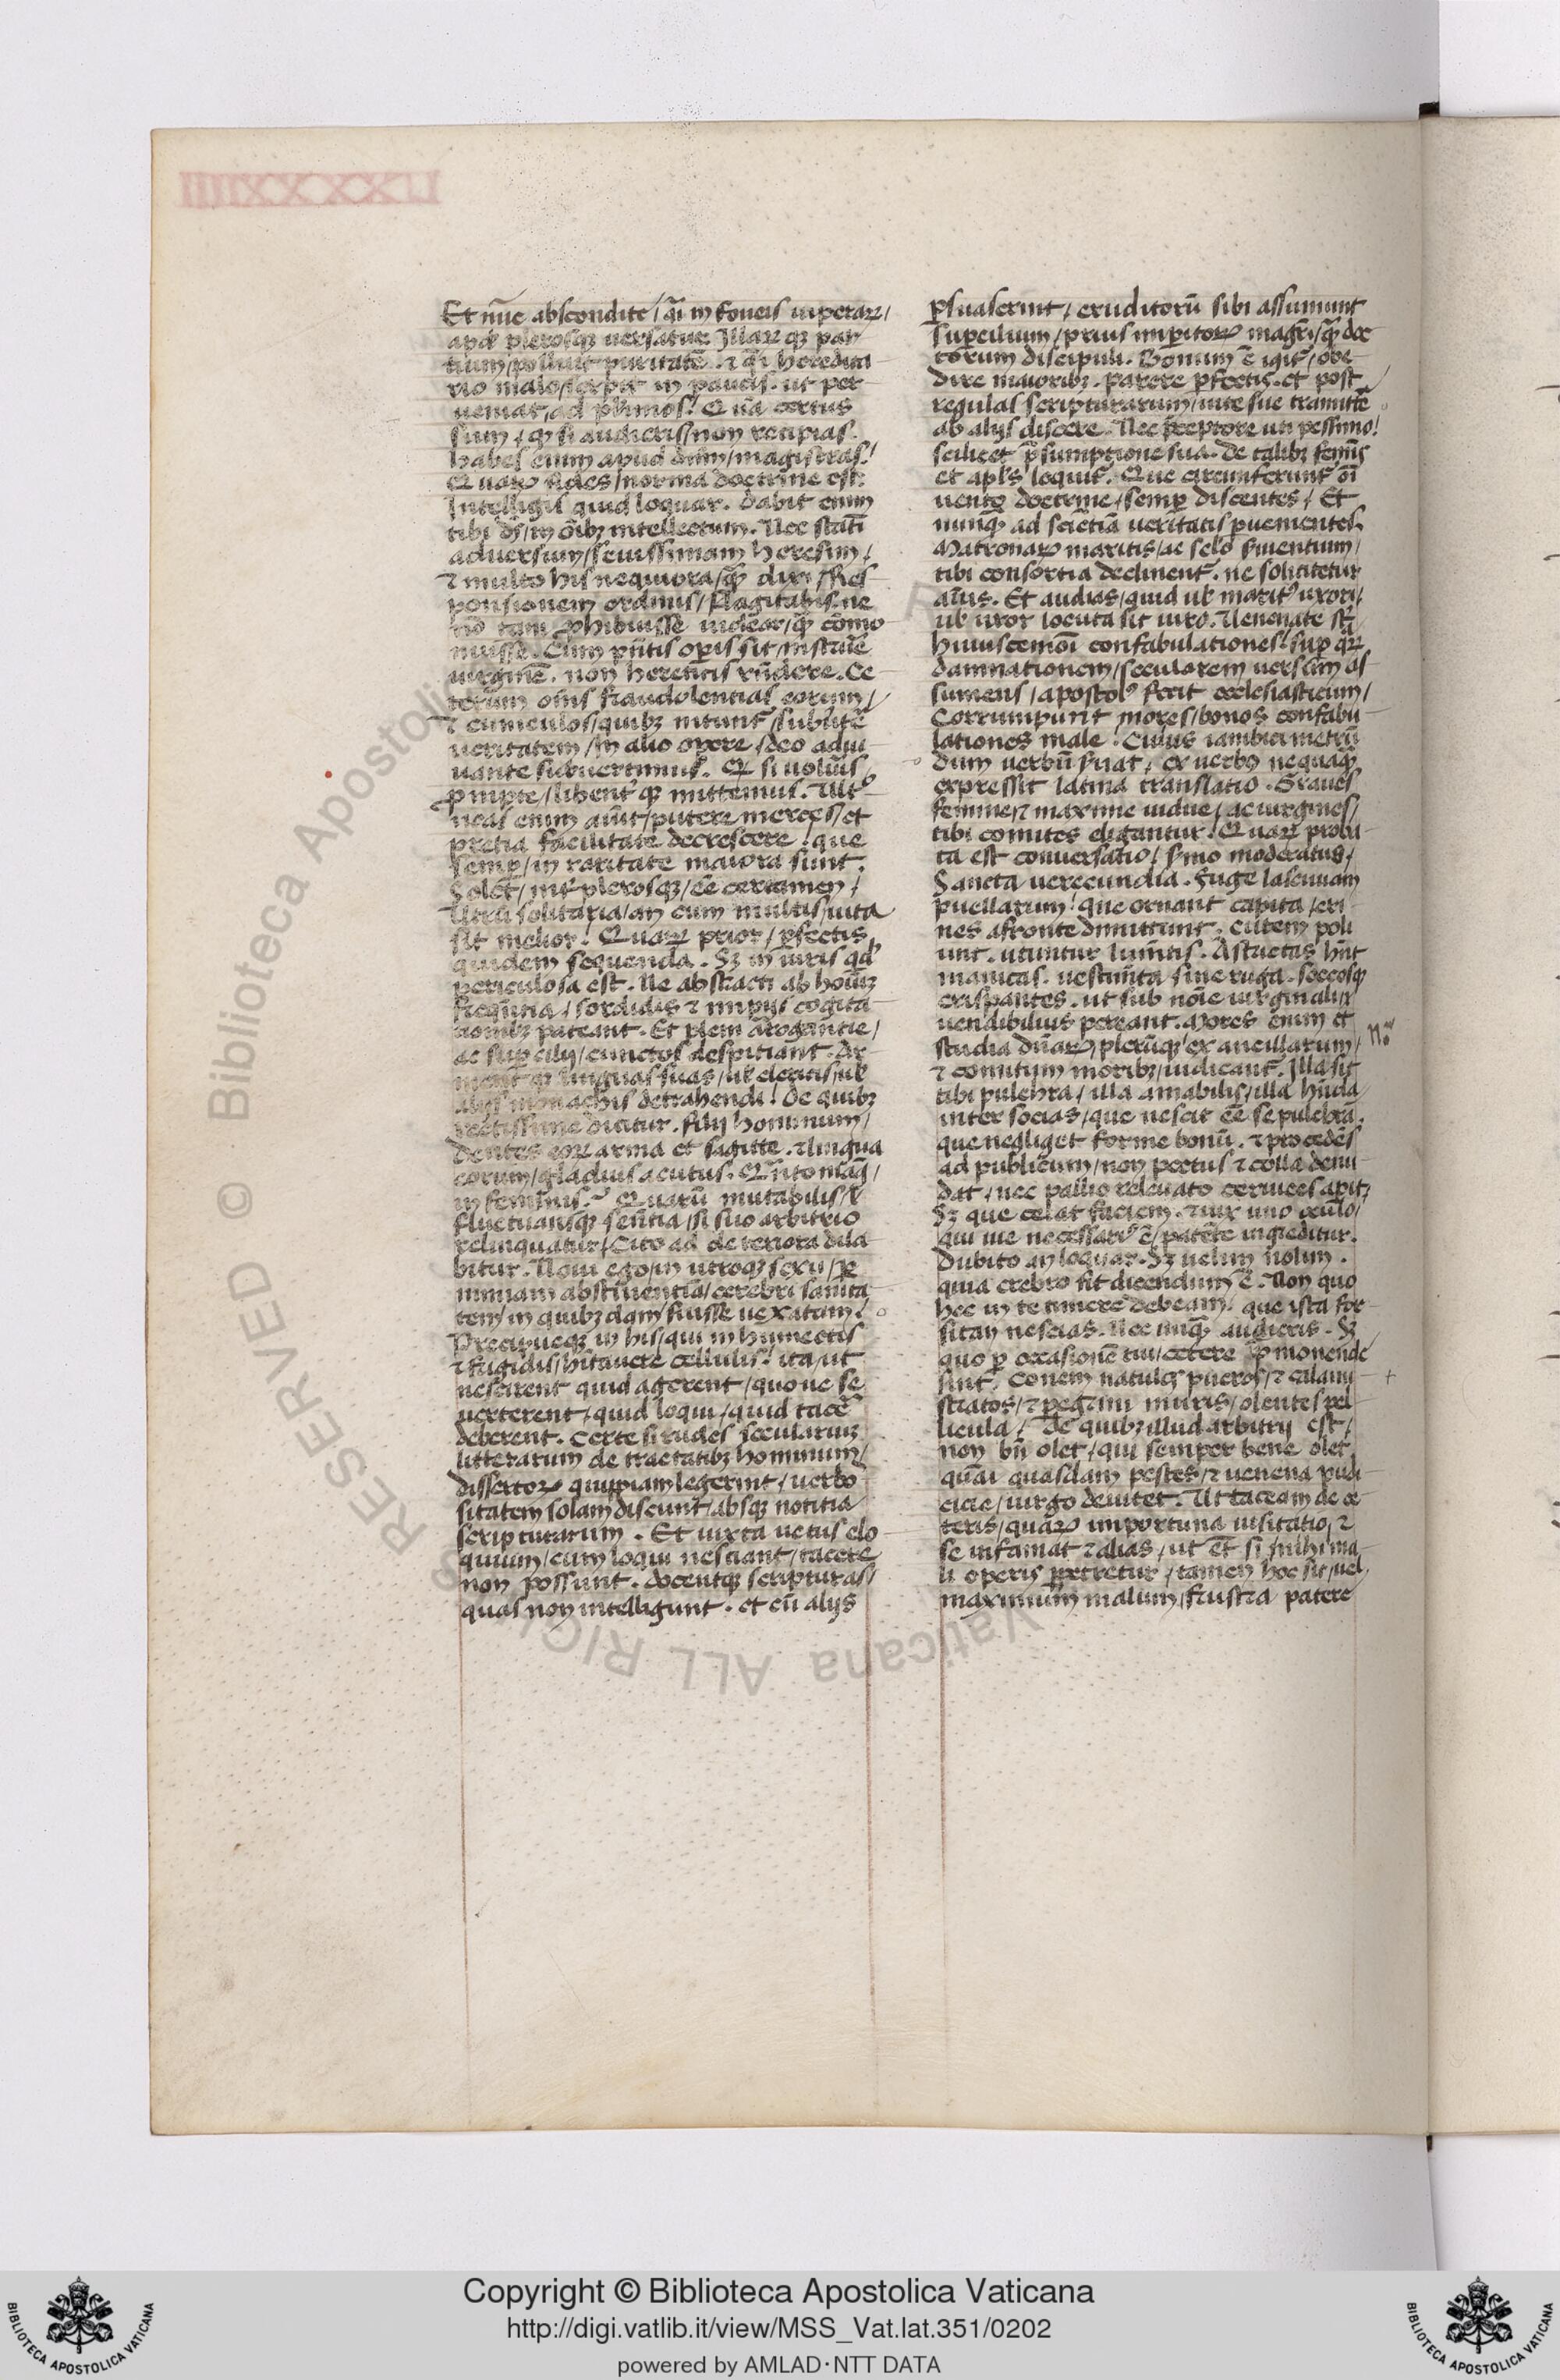 Et nūc abscondite / q̄i in foueis uiperaꝝ /
apd̛ plerosqꝫ uersatur. Illaꝝ qꝫ par
tium / polluit puritatē. ⁊ q̄i heredita
rio malo / serpit in paucis. ut per
ueniat / ad pl̄imos. Q̄ uā certus
sum / qꝫ si audieris / non recipias.
habes enim apud dām / magistras.
Quaꝝ fides / norma doctrine est.
Intelligis quid loquar. dabit enim
tibi dn̄s / in oībꝫ intellectum. Nec statī
aduersum / seuissimam heresim /
⁊ multo his nequiora / q̄ dixi / Res
ponsionem ordinis / flagitabis. ne
nō tam ꝓhibuisse uidear / q̄ cōmo
nuisse. Cum p̄ntis opis sit / instrūē
uirginē. non hereticis rn̄dere. Ce
terum oīns fraudolentias eorum /
⁊ cuniculos / quibꝫ nitunt̄ / sub̄ūtē
ueritatem / in alio opere / deo adiu
uante subuertimus. Q̄ si uoluīs
ꝓmpte / libent̄ qꝫ mittemus. Ult̊
neas enim aiūt / putere merces / et
pretia facilitate decrescere. que
semꝑ / in raritate maiora sunt.
Solet / int̄ plerosqꝫ / eē certamen /
Utrū solitaria / an cum multis / uita
sit melior. Quaꝝ prior / ꝑfectis
quidem sequenda. Sꝫ in uiris qd̄
periculosa est. Ne abstracti ab hoīuꝫ
freq̄ntia / sordidis ⁊ impijs cogita
tionibꝫ pateant. Et pleni arrogantie /
ac sup̄cilij / cunctos despitiant. Ar
ment qꝫ linguas suas / ul̛ clericis / ul̛
alijs monachis detrahendi. de quibꝫ
rectissime dicitur. filij hominum /
dentes eoꝝ arma et sagitte. ⁊ lingua
eorum / gladius acutus. Q̄nto maḡ /
in feminis. Quarū mutabilis /
fluctuansqꝫ sentīa / si suo arbitrio
relinquatur / Cito ad deteriora dila
bitur. Noui ego / in utroqꝫ sexu / ꝑ
nimiam abstinentiā / cerebri sanita
tem / in quibꝫdam / fuisse uexatam.
Precipueqꝫ in his / qui in humectis
⁊ frigidis / hītauere cellulis. ita / ut
nescirent quid agerent / quo ue se
uerterent / quid loqui / quid tacē
deberent. Certe si rudes secularium
litterarum de tractatibꝫ hominum /
dissertoꝝ quippiam legerint / uerbo
sitatem solam discunt / absqꝫ notitia
scripturarum. Et iuxta uetus elo
quium / cum loqui nesciant / tacere
non possunt. docentqꝫ scripturas /
quas non intelligunt. et cū alijs
ꝑsuaserint / eruditorū sibi assumunt
supercilium / prius imꝑitoꝝ magr̄i / q̄ doc
torum discipuli. Bonum ē igit̄ / obe
dire maioribꝫ. parere ꝑfectis. et post
regulas scripturarum / uite sue tramitē
ab alijs discere. Nec preptore uti pessimo!
scilicet p̄sumptione sua. de talibꝫ femīs
et apl̄s loquit̄. Que circūferunt̄ oī
uento doctrine / semꝑ discentes / Et
nunqꝫ ad sciētiā ueritatis ꝑuenientes.
Matronaꝝ maritis / ac sclo̅ seruientium /
tibi consortia declinent̄. ne solicitetur
aīus. Et audias / quid ul̛ marit̛ uxori /
ul̛ uxor locuta sit uiro. Uenenate st̄
huiuscemōi confabulationes. sup q̄ꝝ
damnationem / secularem uersum as
sumens / apostol̛ fecit ecclesiasticum /
Corrumpunt mores / bonos confabu
lationes male. Cuius iambici metrū
dum uerbū seruat / ex uerbo nequaq̄
expressit latina translatio. Graues
femine ⁊ maxime uidue / ac uirgines /
tibi comites eligantur. Quaꝝ proba
ta est conuersatio / sermo moderatus /
Sancta uerecundia. Fuge lasciuiam
puellarum. que ornant capita / cri
nes a fronte dimittunt. cutem poli
unt. utuntur luminis. Astrictas hn̄t
manicas. uestimīta sine ruga. soccosqꝫ
crispantes. ut sub noīe uirginali /
uendibilius pereant. Mores enim et
studia dn̄aꝝ / plerūqꝫ ex ancillarum /
⁊ comitum moribꝫ / iudicant̄. Illa sit
tibi pulchra / illa amabilis / illa hn̄da
inter socias / que nescit eē se pulchrā.
que negliget forme bonū. ⁊ procedēs
ad publicum / non pectus ⁊ colla denu
dat / nec pallio releuato ceruices apit̄
Sꝫ que celat faciem. ⁊ uix uno oculo /
qui uie necessari̛ ē / patēte ingreditur.
Dubito an loquar. Sꝫ uelim nolim.
quia crebro fit dicendum ē. Non quo
hec in te timere debeam. que ista for
sitan nescias. Nec unqꝫ audieris. Sꝫ
quo ꝑ occasionē tui / cetere p̄monende
sint. Conem natulos pueros / ⁊ calami
stratos / ⁊ pegrini muris / olentes pel
licula / De quibꝫ illud arbitrij est /
non bn̄ olet / qui semper bene olet
quasi quasdam pestes / ⁊ uenena pudi
citie / uirgo deuitet. Ut taceam de ce
teris / quaꝝ importuna uisitatio / ⁊
se infamat ⁊ alias / ut ēt si nihil ma
li operis ꝑpetretur / tamen hoc sit / uel
maximum malum / frustra patere
Copyright © Biblioteca Apostolica Vaticana
http://digi.vatlib.it/view/MSS_Vat.lat.351/0202
powered by AMLAD·NTT DATA